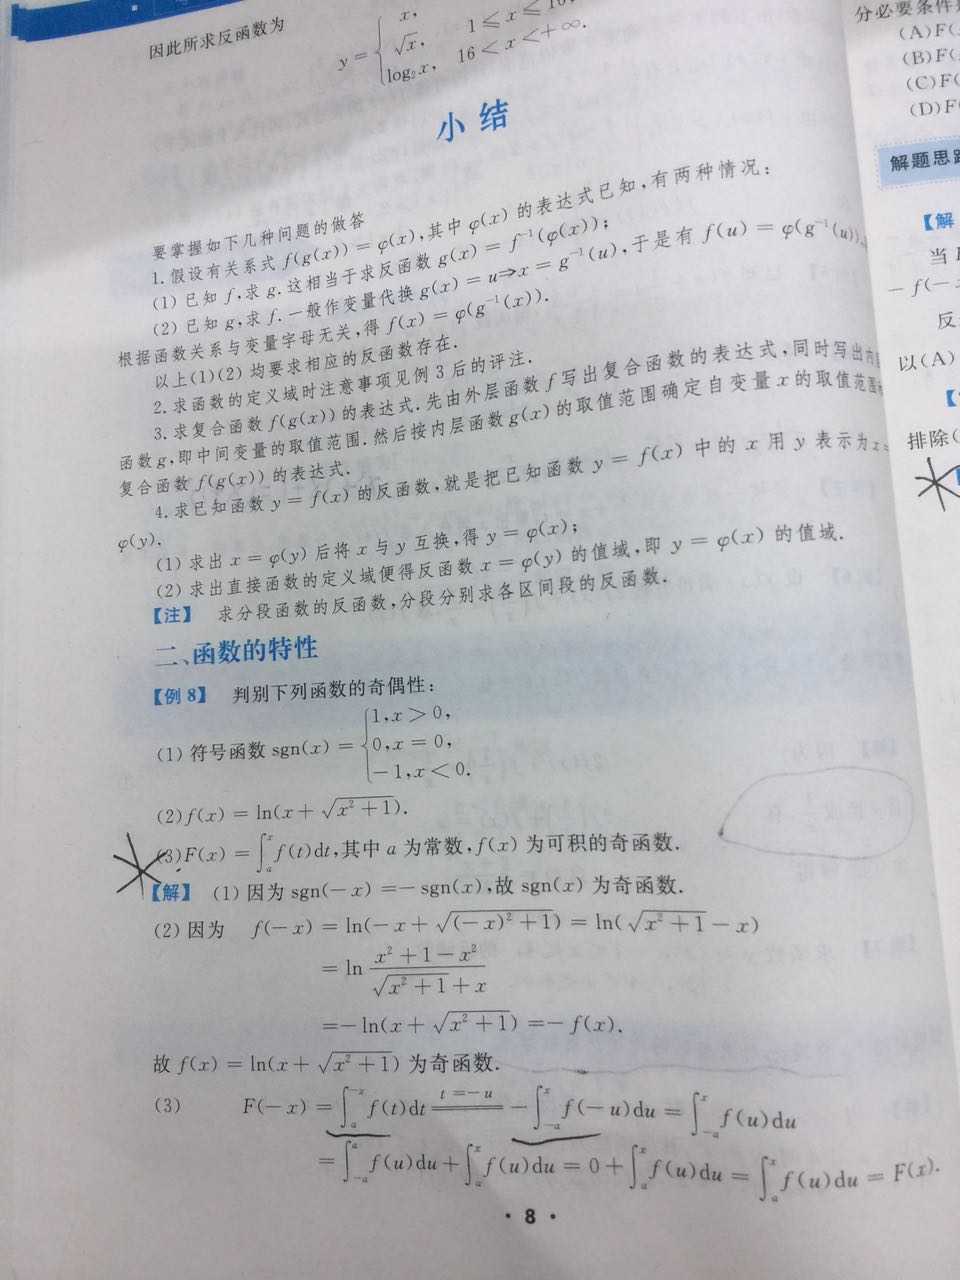 因此所求反函数为
y = { x,
√x, 1 ≤ x ≤ 16,
log₂x, 16 < x < +∞.
小结
要掌握如下几种问题的做答
1. 假设有关系式 f(g(x)) = φ(x),其中 φ(x) 的表达式已知,有两种情况:
(1) 已知 f,求 g. 这相当于求反函数 g(x) = f⁻¹(φ(x));
(2) 已知 g,求 f. 一般作变量代换 g(x) = u⇒x = g⁻¹(u),于是有 f(u) = φ(g⁻¹(u)),
根据函数关系与变量字母无关,得 f(x) = φ(g⁻¹(x)).
以上(1)(2) 均要求相应的反函数存在.
2. 求函数的定义域时注意事项见例 3 后的评注.
3. 求复合函数 f(g(x)) 的表达式. 先由外层函数 f 写出复合函数的表达式,同时写出内层
函数 g,即中间变量的取值范围. 然后按内层函数 g(x) 的取值范围确定自变量 x 的取值范围
复合函数 f(g(x)) 的表达式.
4. 求已知函数 y = f(x) 的反函数,就是把已知函数 y = f(x) 中的 x 用 y 表示为 x =
φ(y).
(1) 求出 x = φ(y) 后将 x 与 y 互换,得 y = φ(x);
(2) 求出直接函数的定义域便得反函数 x = φ(y) 的值域,即 y = φ(x) 的值域.
【注】 求分段函数的反函数,分段分别求各区间段的反函数.
二、函数的特性
【例 8】 判别下列函数的奇偶性:
(1) 符号函数 sgn(x) = { 1,x > 0,
0,x = 0,
−1,x < 0.
(2) f(x) = ln(x + √(x² + 1)).
(3) F(x) = ∫ₐˣ f(t)dt,其中 a 为常数,f(x) 为可积的奇函数.
【解】 (1) 因为 sgn(−x) =− sgn(x),故 sgn(x) 为奇函数.
(2) 因为 f(−x) = ln(−x + √((−x)² + 1)) = ln(√(x² + 1) − x)
= ln (x² + 1 − x²)/(√(x² + 1) + x)
=− ln(x + √(x² + 1)) =− f(x).
故 f(x) = ln(x + √(x² + 1)) 为奇函数.
(3) F(−x) = ∫ₐ⁻ˣ f(t)dt ══(t =− u)══ −∫₋ₐˣ f(−u)du = ∫₋ₐˣ f(u)du
= ∫₋ₐᵃ f(u)du + ∫ₐˣ f(u)du = 0 + ∫ₐˣ f(u)du = ∫ₐˣ f(u)du = F(x).
· 8 ·
分必要条件是
(A) F(
(B) F(
(C) F(
(D) F(
解题思路
【解】
当 F
− f(−
反
以(A)
排除(